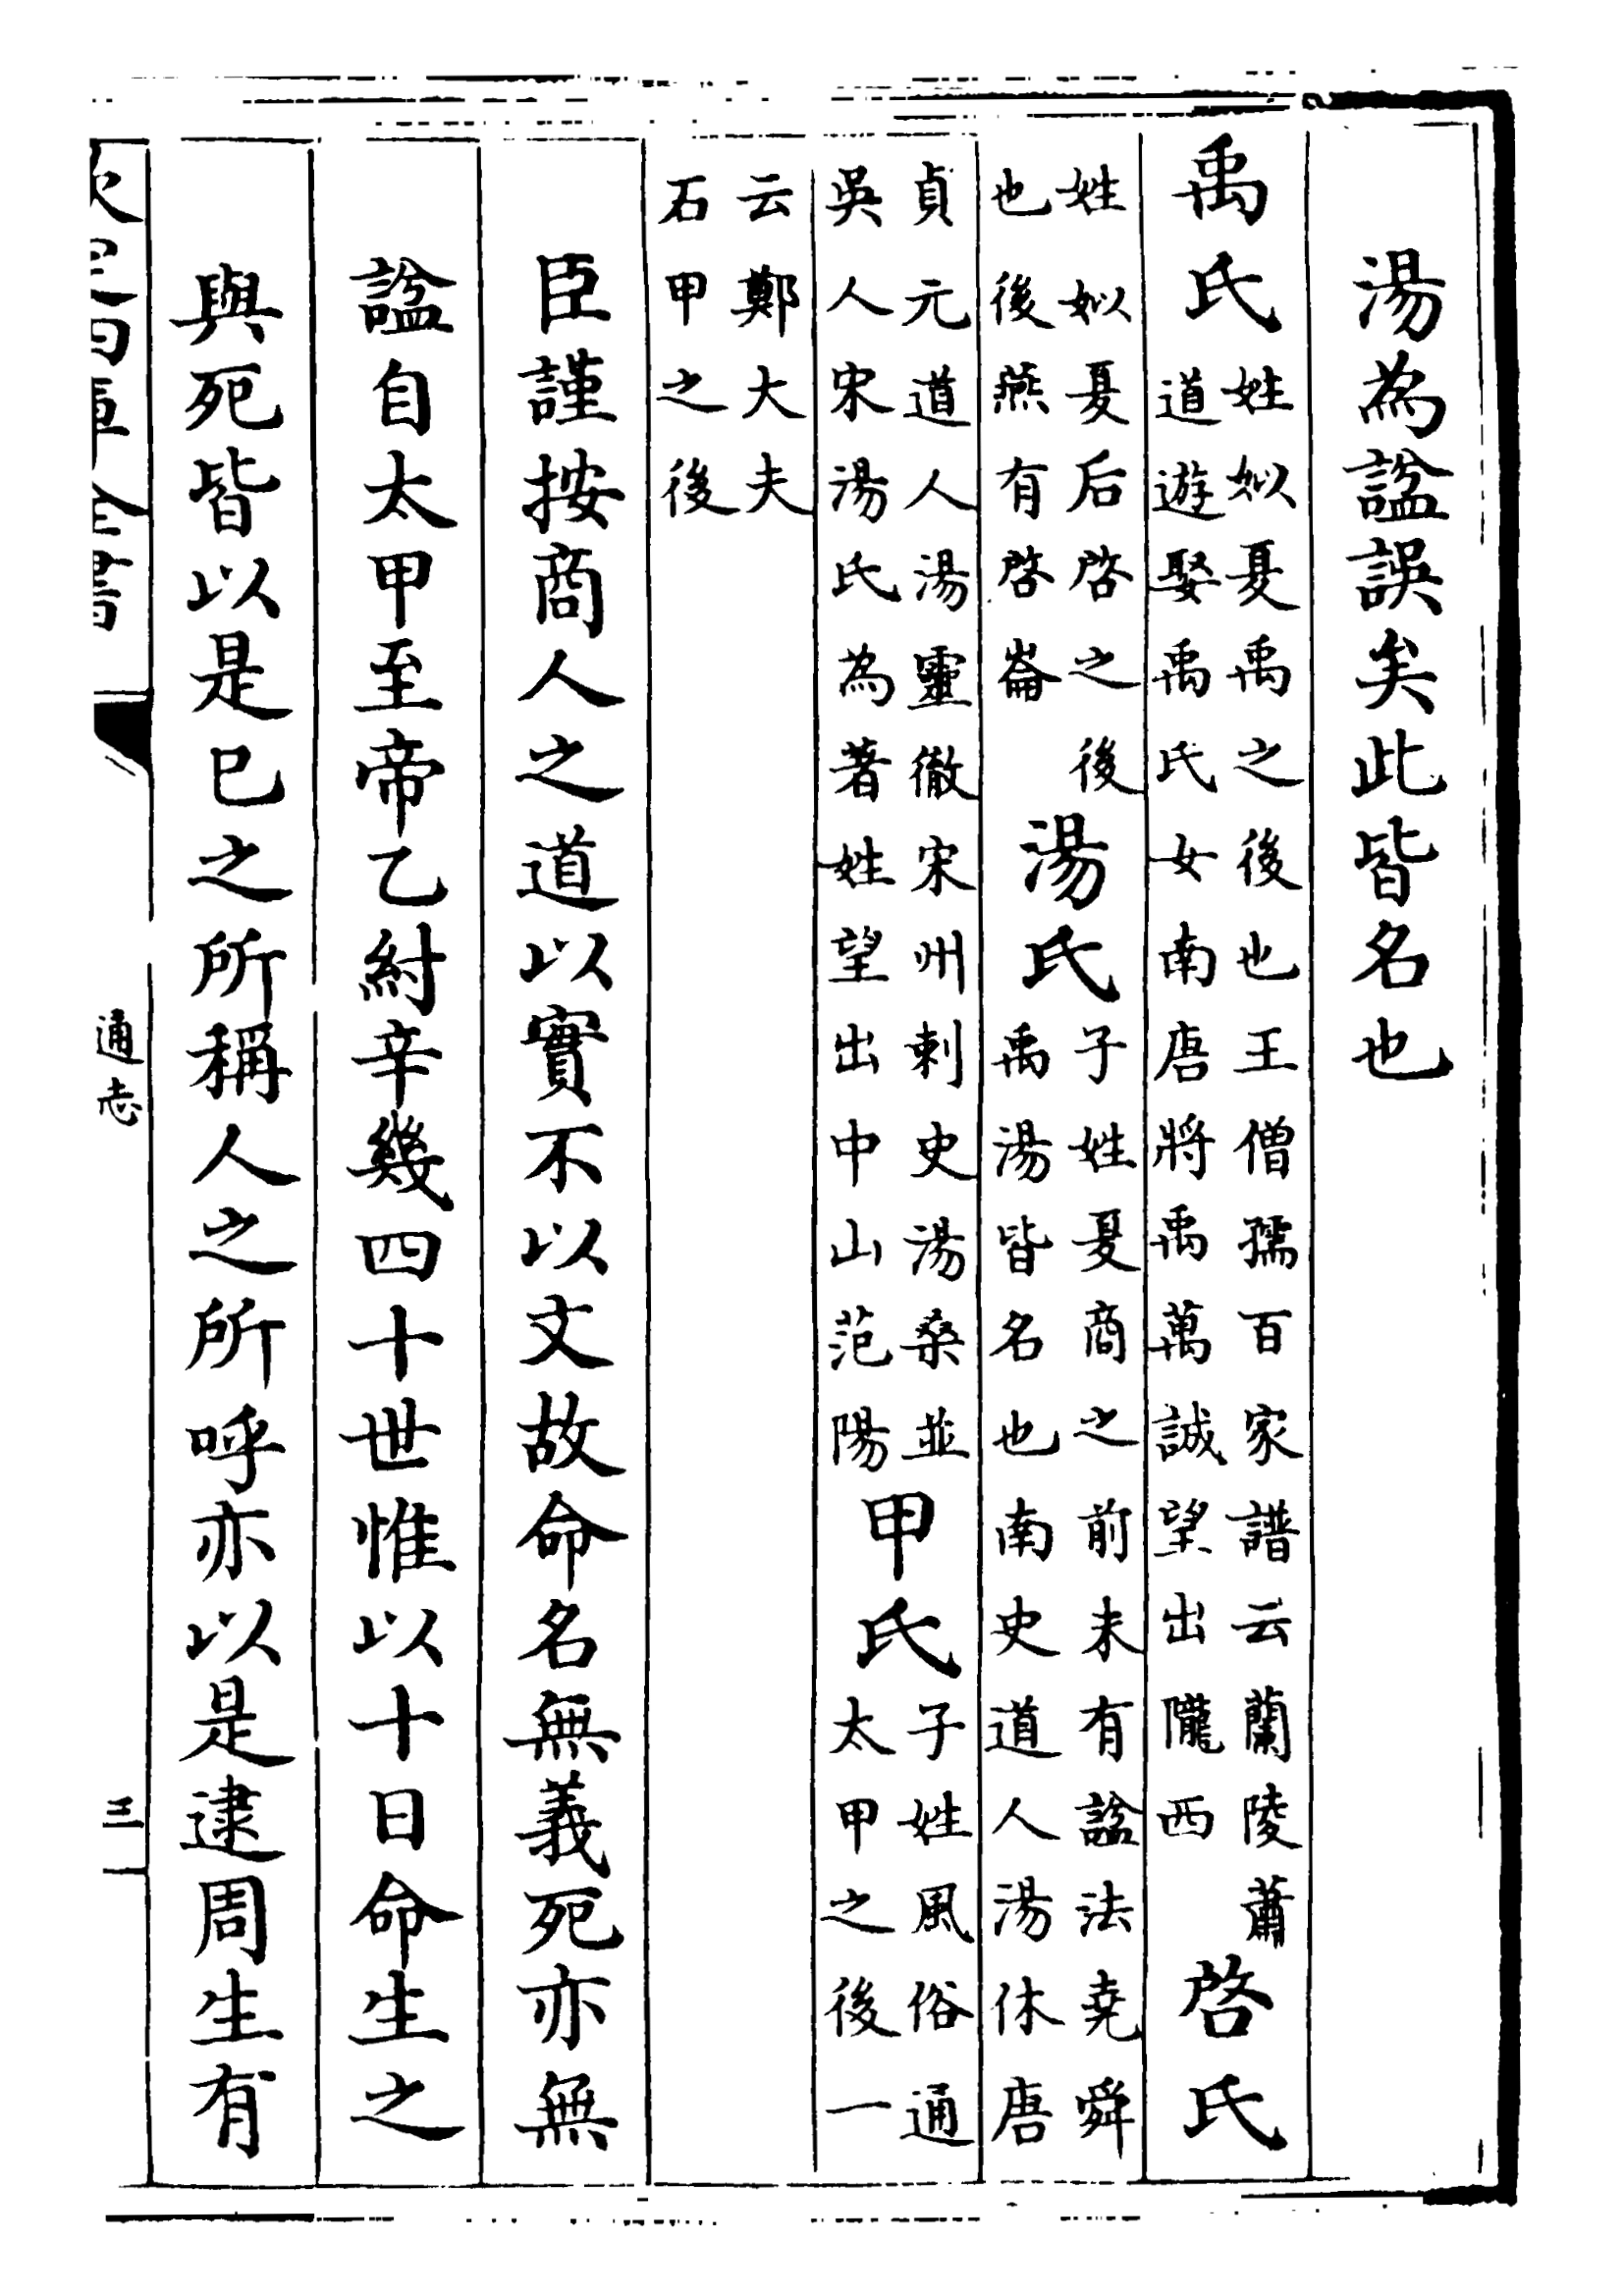 湯為諡誤矣此皆名也
禹氏姓姒夏禹之後也王僧孺百家譜云蘭陵蕭道遊娶禹氏女南唐將禹萬誠望出隴西啓氏
姓姒夏后啓之後也後燕有啓崙湯氏子姓夏商之前未有諡法堯舜禹湯皆名也南史道人湯休唐
貞元道人湯靈徹宋州刺史湯桑並吳人宋湯氏為著姓望出中山范陽甲氏子姓風俗通太甲之後一
云鄭大夫石甲之後
臣謹按商人之道以實不以文故命名無義死亦無
諡自太甲至帝乙紂辛幾四十世惟以十日命生之
與死皆以是已之所稱人之所呼亦以是逮周生有
欽定四庫全書
通志
三